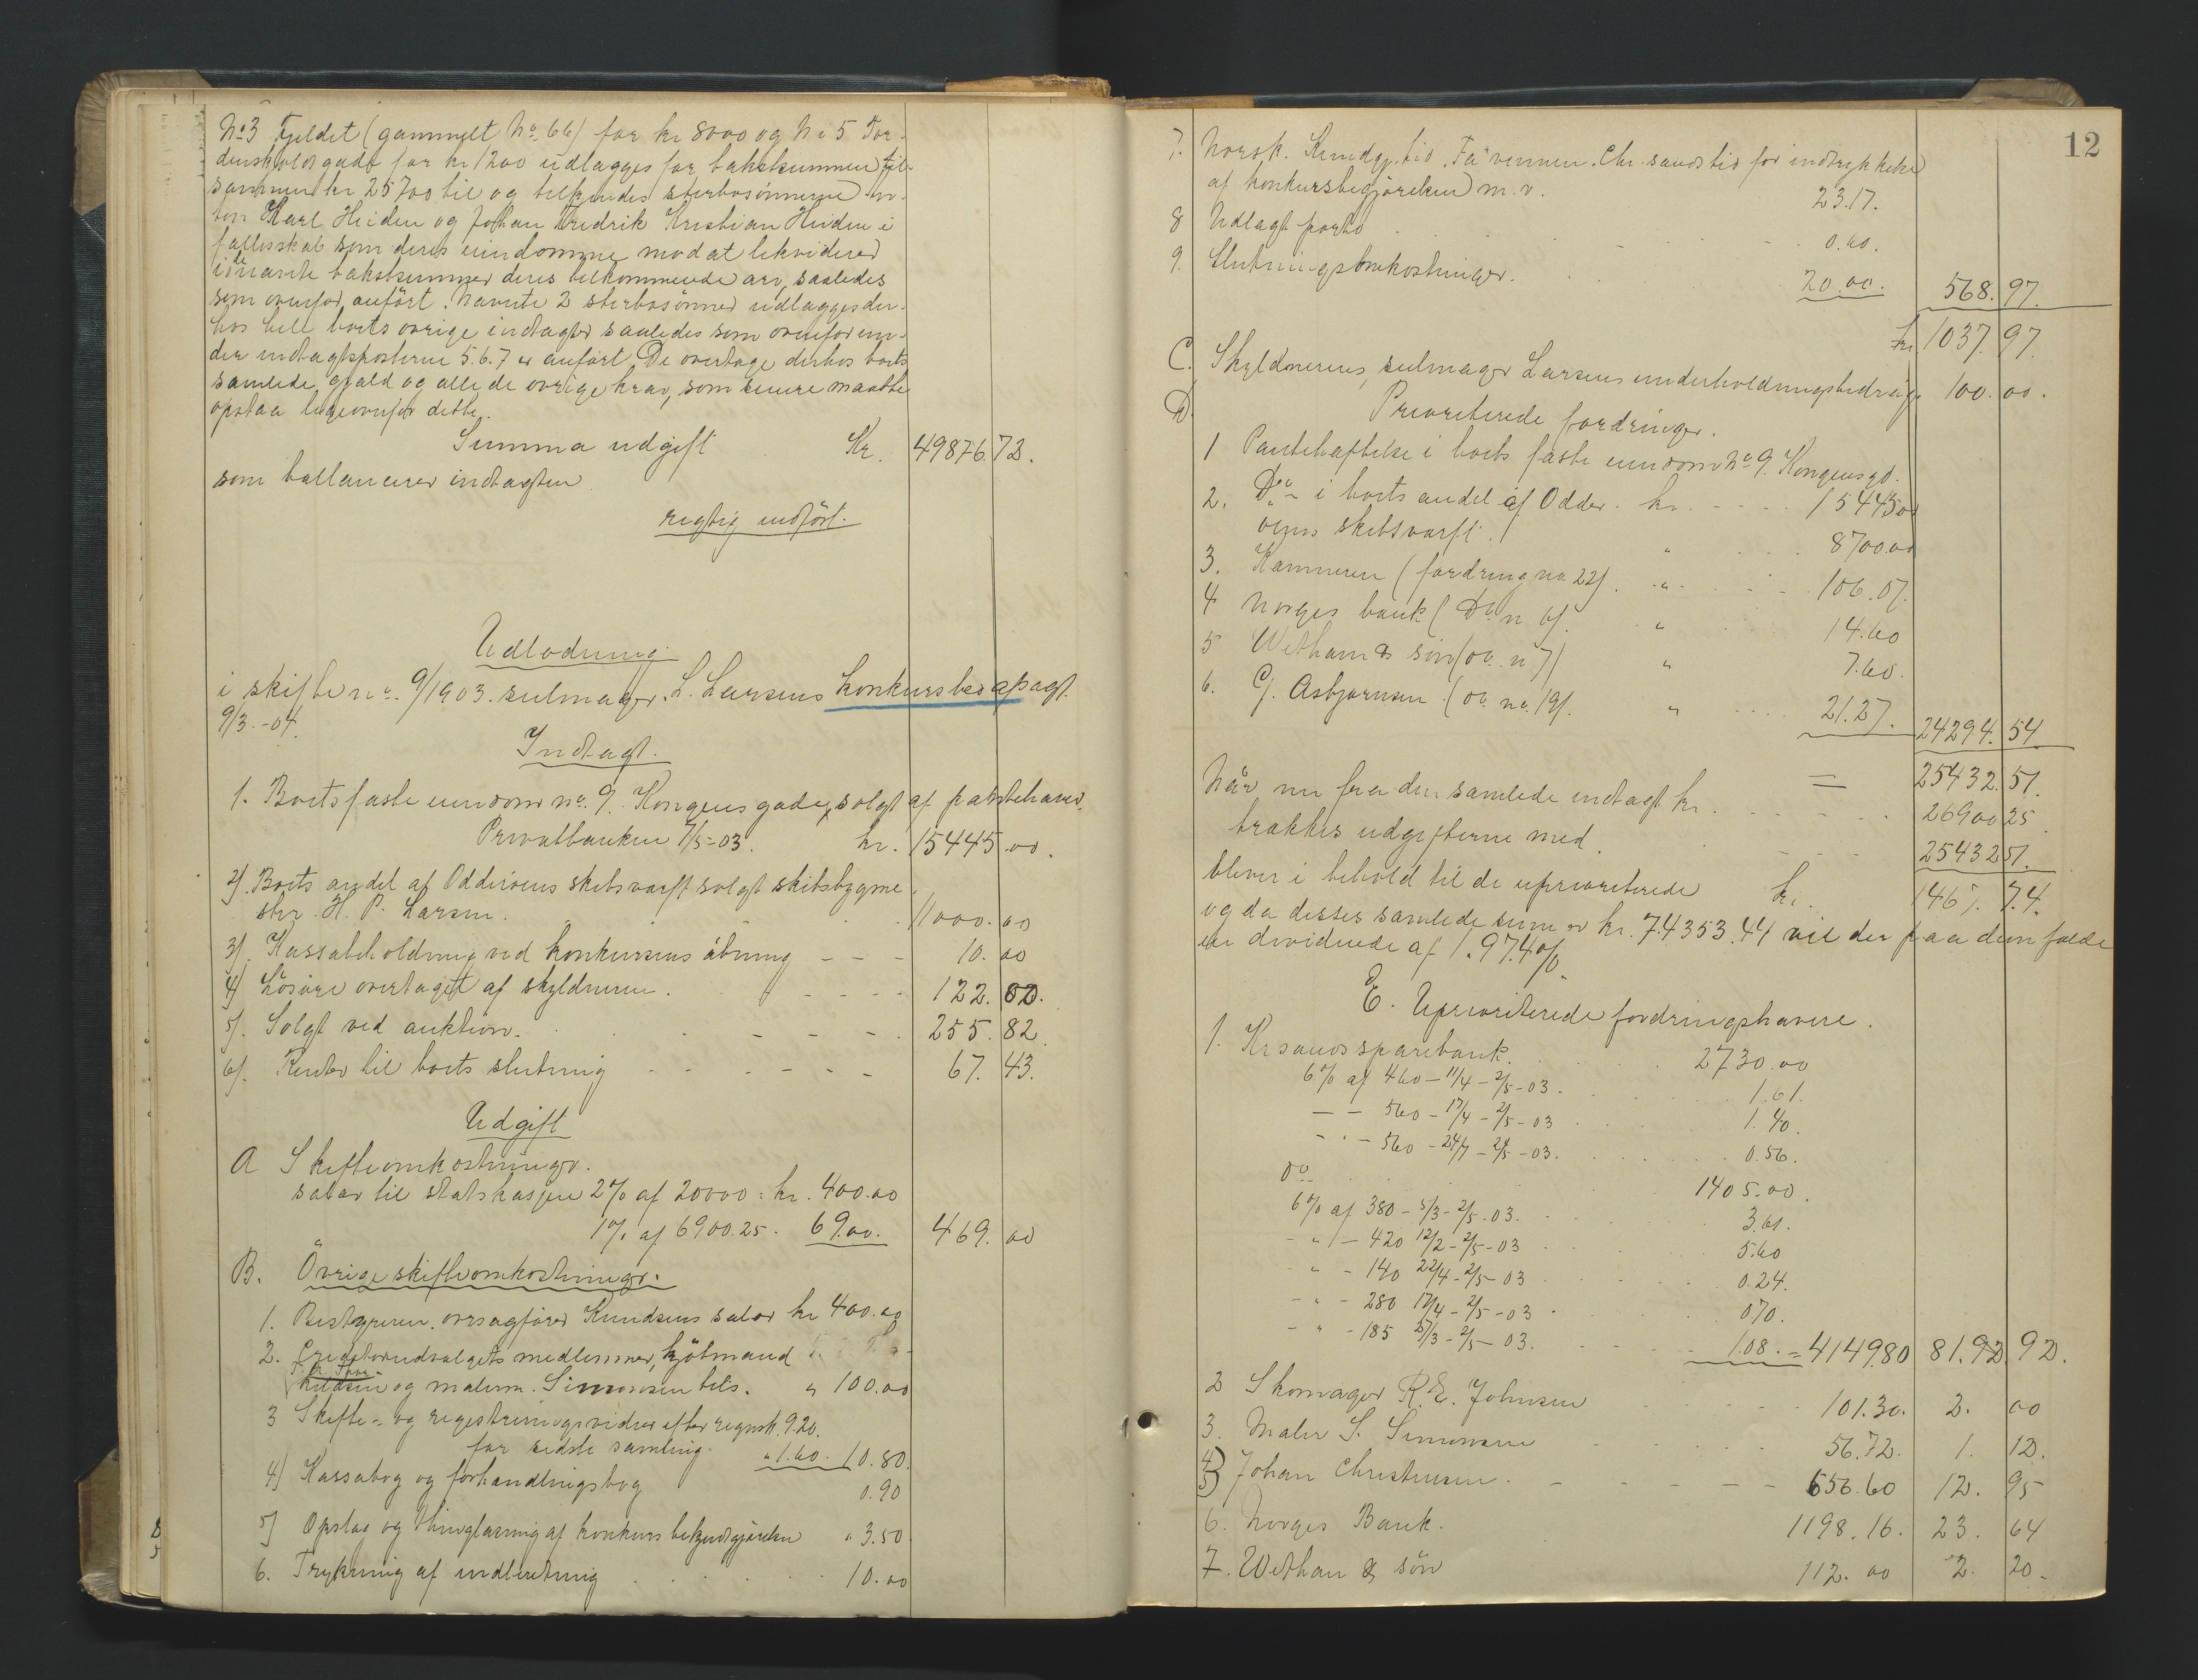 No 3 Fjeldet (gammelt No. 66) for kr 8000 og No 5 Tor-
denskjoldsgade for kr 1200 udlægges for takstsummen til-
sammen kr 25700 til og tilkjendes sterbosønnerne An-
ton Karl Heiden og Johan Fredrik Kristian Heiden i
fællesskab som deres eiendomme mod at likviderer
i de nævnte takstsummer deres tilkommende arv, saaledes
som ovenfor anført. Nævnte 2 sterbosønner udlægges der-
hos hele boets øvrige indtægter saaledes som ovenfor un-
der indtægtsposterne 5.6.7 er anført. De overtage derhos boets
samlede gjæld og alle de øvrige krav, som senere maatte
opstaa ligeoverfor dette.
Summa udgift Kr. 49876 72.
som ballancerer indtægten
rigtig udført.
Udlodning
i skifte no. 9/1903. seilmager L. Larsens konkursbo apagt.
9/3.-04.
Indtægt.
1. Boets faste eiendom no. 9. Kongensgade, solgt af pantehaver
Privatbanken 7/5-03. kr. 15445 00.
2). Boets andel af Odderøens skibsværft solgt skibsbygme
ster H. P. Larsen. 11000. 00
3). Kassabeholdning ved konkursens åbning - - - 10. 00
4) Løsøre overtaget af skyldneren. - - - - 122. 02.
5). Solgt ved auktion. - - - - 255. 82.
6). Renter til boets slutning - - - - - 67. 43.
Udgift
A Skifteomkostninger.
salær til statskassen 2% af 20000 = kr. 400.00
1% af 6900.25. 69.00. 469. 00
B. Övrige skifteomkostninger.
1. Bestyreren, overságfører Knudsens salær kr 400.00
2. Creditorudvalgets medlemmer, kjøbmand
og malerm. Simonsen tils. " 100.00
3 Skifte- og registreringsvidner efter regnsk. 9.20.
for sidste samling. " 1.60. 10.80.
4) Kassabog og forhandlingsbog 0.90
5) Opslag og thinglæsning af konkurs bekjendtgjørelsen " 3.50.
6. Trykning af indberetning 10.00
12
7. Norsk. Kundgj. tid, Fædrevennen, Chr.sands tid for indrykkelse
af konkursbegjærelsen m. v. 23.17.
8 Udlagt porto 0.60.
9. Slutningsomkostninger. 20.00. 568. 97.
kr 1037. 97.
C. Skyldnerens, seilmager Larsens underholdningsbidrag 100. 00.
D. Prioriterede fordringer.
1 Pantehæftelse i boets faste eiendom No 9. Kongensgd.
kr. - - - - 15445.00
2. Do - i boets andel af Odder-
øens skibsværft. " 8700.00
3. Kæmneren (fordring no 22). " 106.07.
4 Norges bank (Do n 6). " 14.60
5 Wetham & søn (do. n 7) " 7.60.
6. G. Asbjørnsen (do no. 19). " 21.27. 24294. 54
= 25432. 51.
Når nu fra den samlede indtægt kr. 26900 25.
trækkes udgifterne med 25432 51.
bliver i behold til de uprioriterede kr. 1467. 74.
og da disses samlede sum er kr. 74353.44 vil der paa dem falde
en dividende af 1.974%.
E. Uprioriterede fordringshavere.
1. Krsands sparebank. 2730.00
6% af 460 - 11/4 - 2/5 - 03. 1.61.
— - 560 - 17/4 - 2/5 - 03 1.40.
- " - 560 - 24/4 - 2/5 - 03. 0.56.
do 1405.00.
6% af 380 - 5/3 - 2/5 - 03. 3.61.
- " - 420 12/2 - 2/5 - 03 5.60
- " - 140 22/4 - 2/5 - 03 0.24.
- " - 280 17/4 - 2/5 - 03 070.
- " - 185 27/3 - 2/5 - 03. 1.08. = 4149.80 81.92 92.
2 Skomager R. E. Johnsen 101.30. 2. 00
3. Maler S. Simonsen 56.72. 1. 12.
4) 5) Johan Christensen. 656.60 12. 95
6. Norges Bank. 1198.16. 23. 64
7. Wetham & søn 112.00 2. 20.